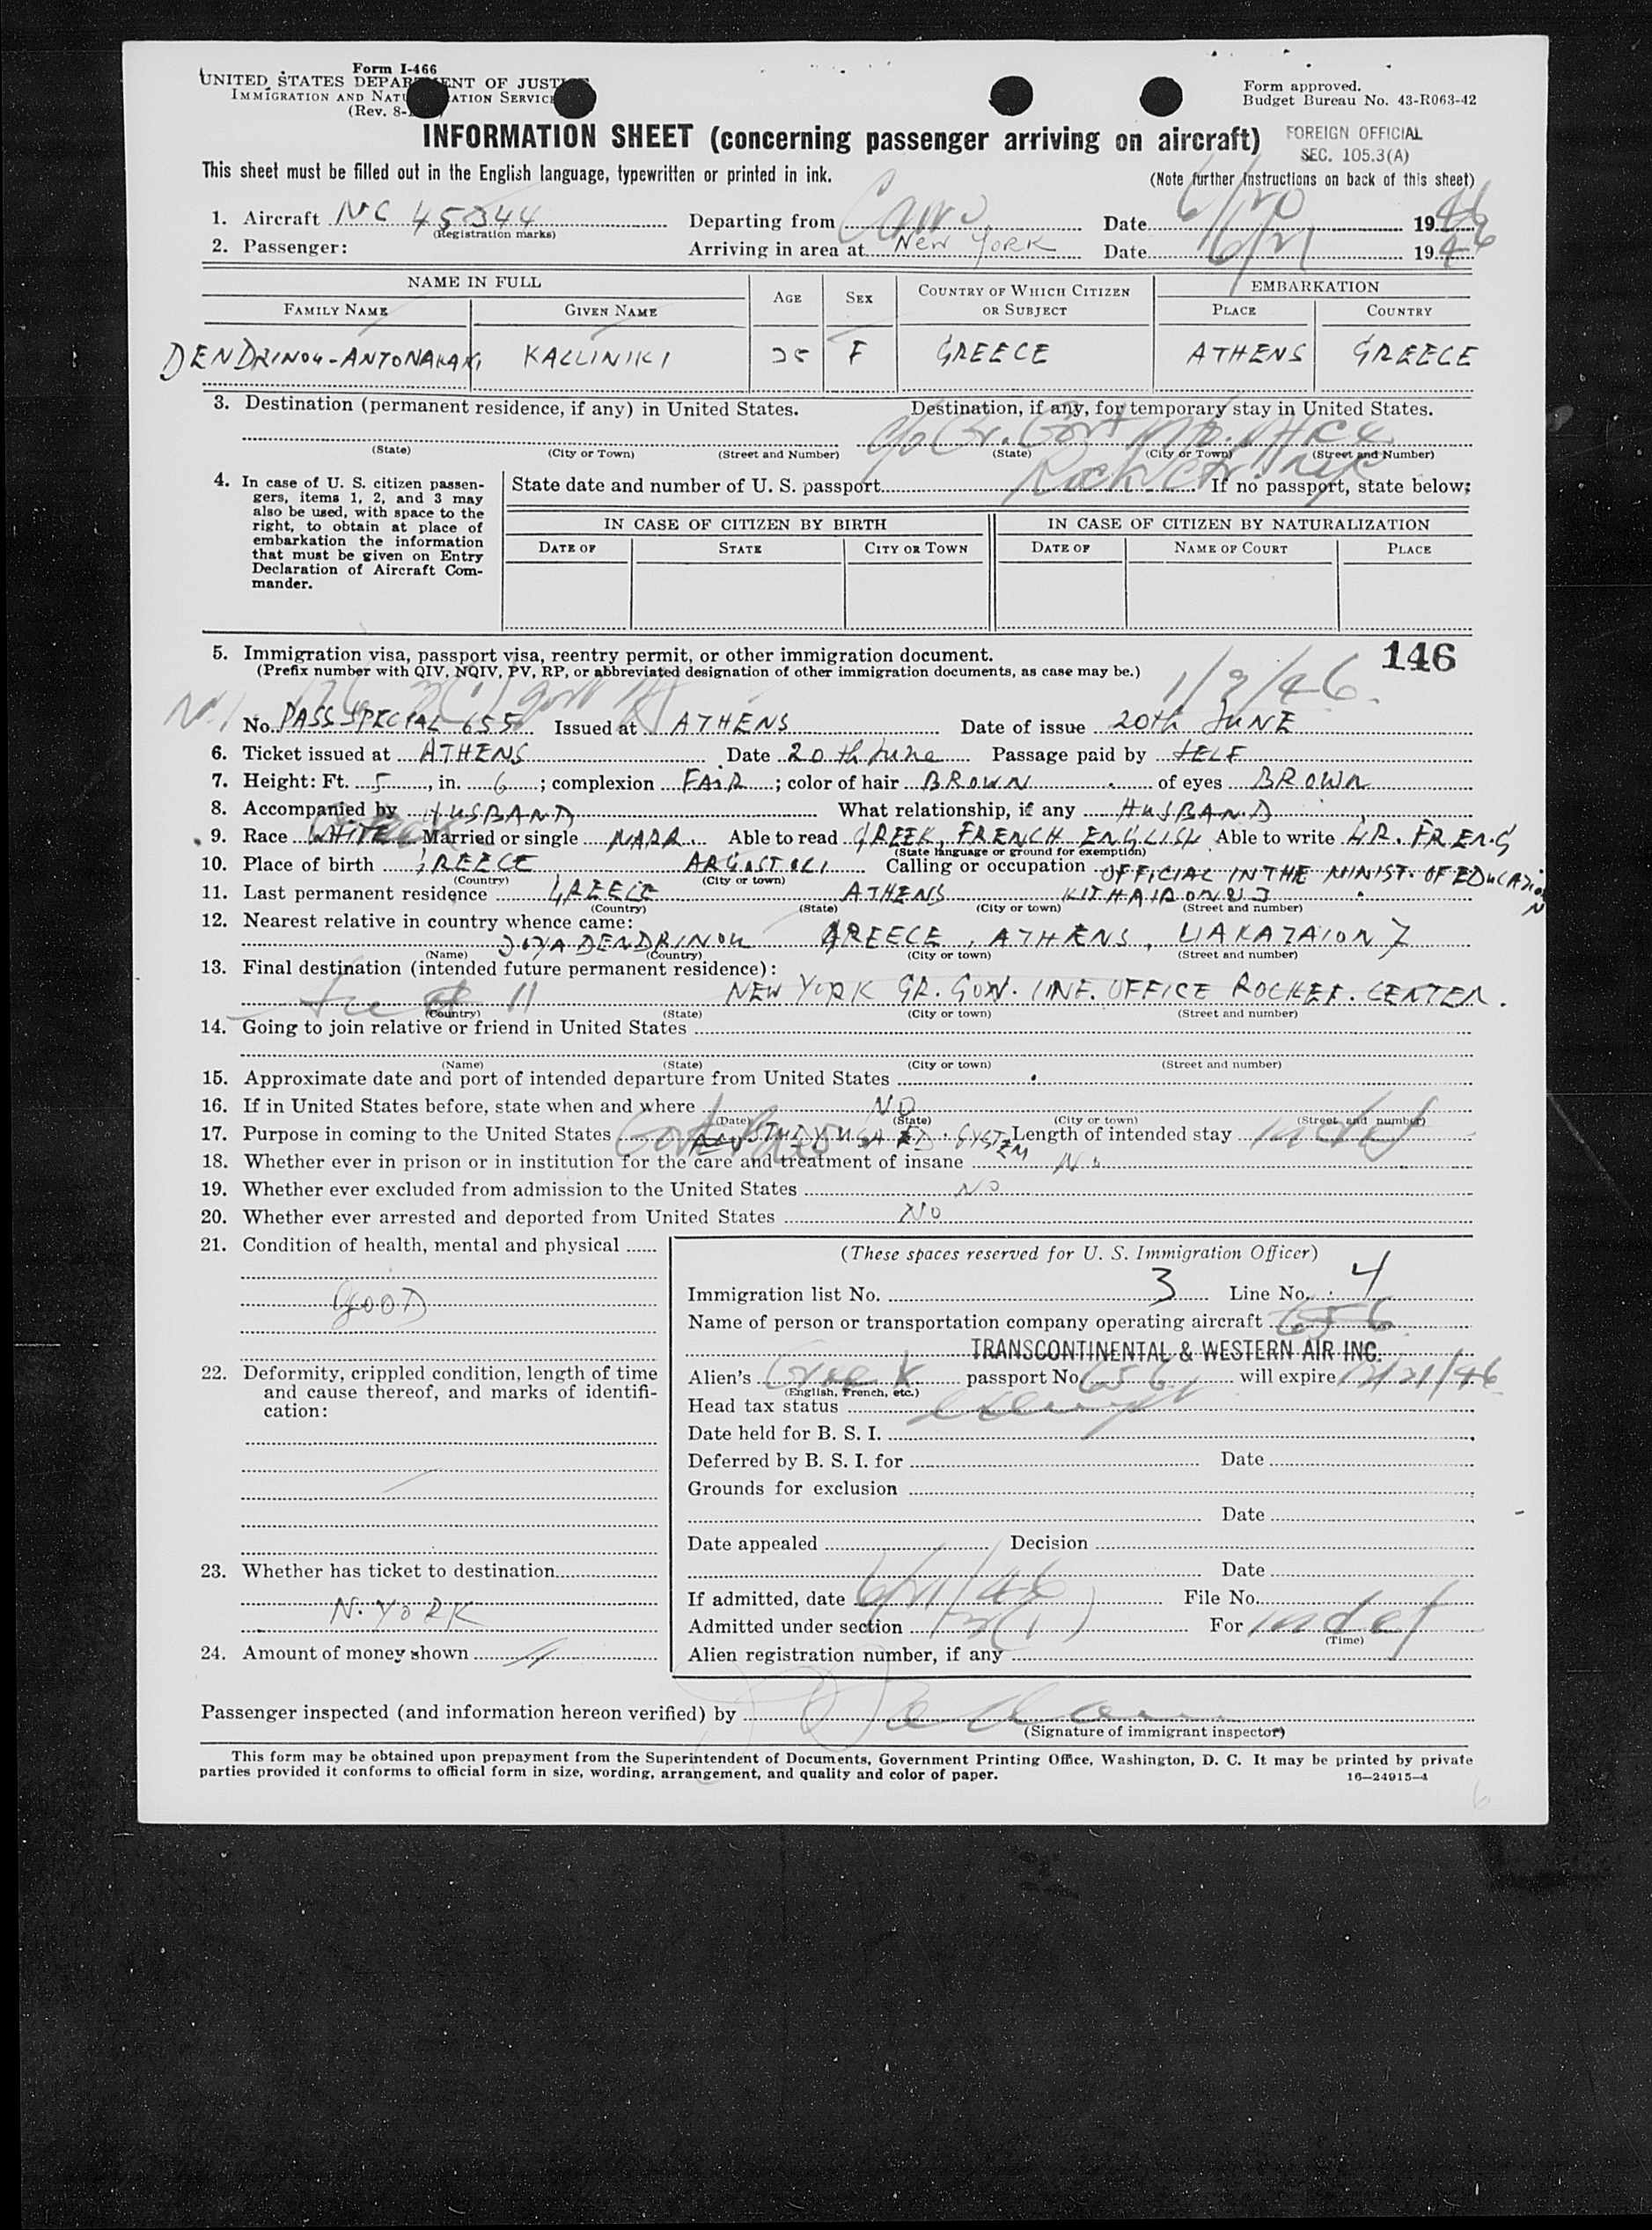 Form I-466
UNITED STATES DEPARTMENT OF JUSTICE
IMMIGRATION AND NATURALIZATION SERVICE
(Rev. 8-
Form approved.
Budget Bureau No. 43-R063-42
INFORMATION SHEET (concerning passenger arriving on aircraft)
FOREIGN OFFICIAL
SEC. 105.3(A)
This sheet must be filled out in the English language, typewritten or printed in ink.
(Note further instructions on back of this sheet)
1. Aircraft NC 45344 Departing from Cairo Date 6/20 1946
(Registration marks)
2. Passenger: Arriving in area at New York Date 6/21 1946
NAME IN FULL AGE SEX COUNTRY OF WHICH CITIZEN OR SUBJECT EMBARKATION
FAMILY NAME GIVEN NAME PLACE COUNTRY
DENDRINOU-ANTONAKAKI KALLINIKI F GREECE ATHENS GREECE
3. Destination (permanent residence, if any) in United States. Destination, if any, for temporary stay in United States.
c/o Gr. Govt Inf. Office
(State) (City or Town) (Street and Number) (State) (City or Town) (Street and Number)
Rock. Ctr. NYC
4. In case of U. S. citizen passengers, items 1, 2, and 3 may also be used, with space to the right, to obtain at place of embarkation the information that must be given on Entry Declaration of Aircraft Commander.
State date and number of U. S. passport If no passport, state below:
IN CASE OF CITIZEN BY BIRTH IN CASE OF CITIZEN BY NATURALIZATION
DATE OF STATE CITY OR TOWN DATE OF NAME OF COURT PLACE
146
5. Immigration visa, passport visa, reentry permit, or other immigration document.
(Prefix number with QIV, NQIV, PV, RP, or abbreviated designation of other immigration documents, as case may be.)
No. PASS SPECIAL 655 Issued at ATHENS Date of issue 20th JUNE
6. Ticket issued at ATHENS Date 20th June Passage paid by SELF
7. Height: Ft. 5, in. 6; complexion FAIR; color of hair BROWN of eyes BROWN
8. Accompanied by HUSBAND What relationship, if any HUSBAND
9. Race WHITE Married or single MARR. Able to read GREEK, FRENCH ENGLISH Able to write GR. FR ENG
(State language or ground for exemption)
10. Place of birth GREECE ARGOSTOLI Calling or occupation OFFICIAL IN THE MINIST. OF EDUCATION
(Country) (City or town)
11. Last permanent residence GREECE ATHENS
(Country) (State) (City or town) (Street and number)
12. Nearest relative in country whence came:
DENDRINOU GREECE, ATHENS, 7
(Name) (Country) (City or town) (Street and number)
13. Final destination (intended future permanent residence):
NEW YORK GR. GOV. INF. OFFICE ROCKEF. CENTER.
(Country) (State) (City or town) (Street and number)
14. Going to join relative or friend in United States
(Name) (State) (City or town) (Street and number)
15. Approximate date and port of intended departure from United States
16. If in United States before, state when and where NO
(Date) (State) (City or town) (Street and number)
17. Purpose in coming to the United States STUDY USA ED. SYSTEM Length of intended stay indef
18. Whether ever in prison or in institution for the care and treatment of insane No
19. Whether ever excluded from admission to the United States NO
20. Whether ever arrested and deported from United States NO
21. Condition of health, mental and physical
GOOD
22. Deformity, crippled condition, length of time and cause thereof, and marks of identification:
23. Whether has ticket to destination
N. YORK
24. Amount of money shown
(These spaces reserved for U. S. Immigration Officer)
Immigration list No. 3 Line No. 4
Name of person or transportation company operating aircraft 656
TRANSCONTINENTAL & WESTERN AIR INC.
Alien's Greek passport No. 656 will expire 12/21/46
(English, French, etc.)
Head tax status exempt
Date held for B. S. I.
Deferred by B. S. I. for Date
Grounds for exclusion
Date
Date appealed Decision
Date
If admitted, date 6/21/46 File No.
Admitted under section 3(1) For indef
(Time)
Alien registration number, if any
Passenger inspected (and information hereon verified) by
(Signature of immigrant inspector)
This form may be obtained upon prepayment from the Superintendent of Documents, Government Printing Office, Washington, D. C. It may be printed by private
parties provided it conforms to official form in size, wording, arrangement, and quality and color of paper.
16—24915-4